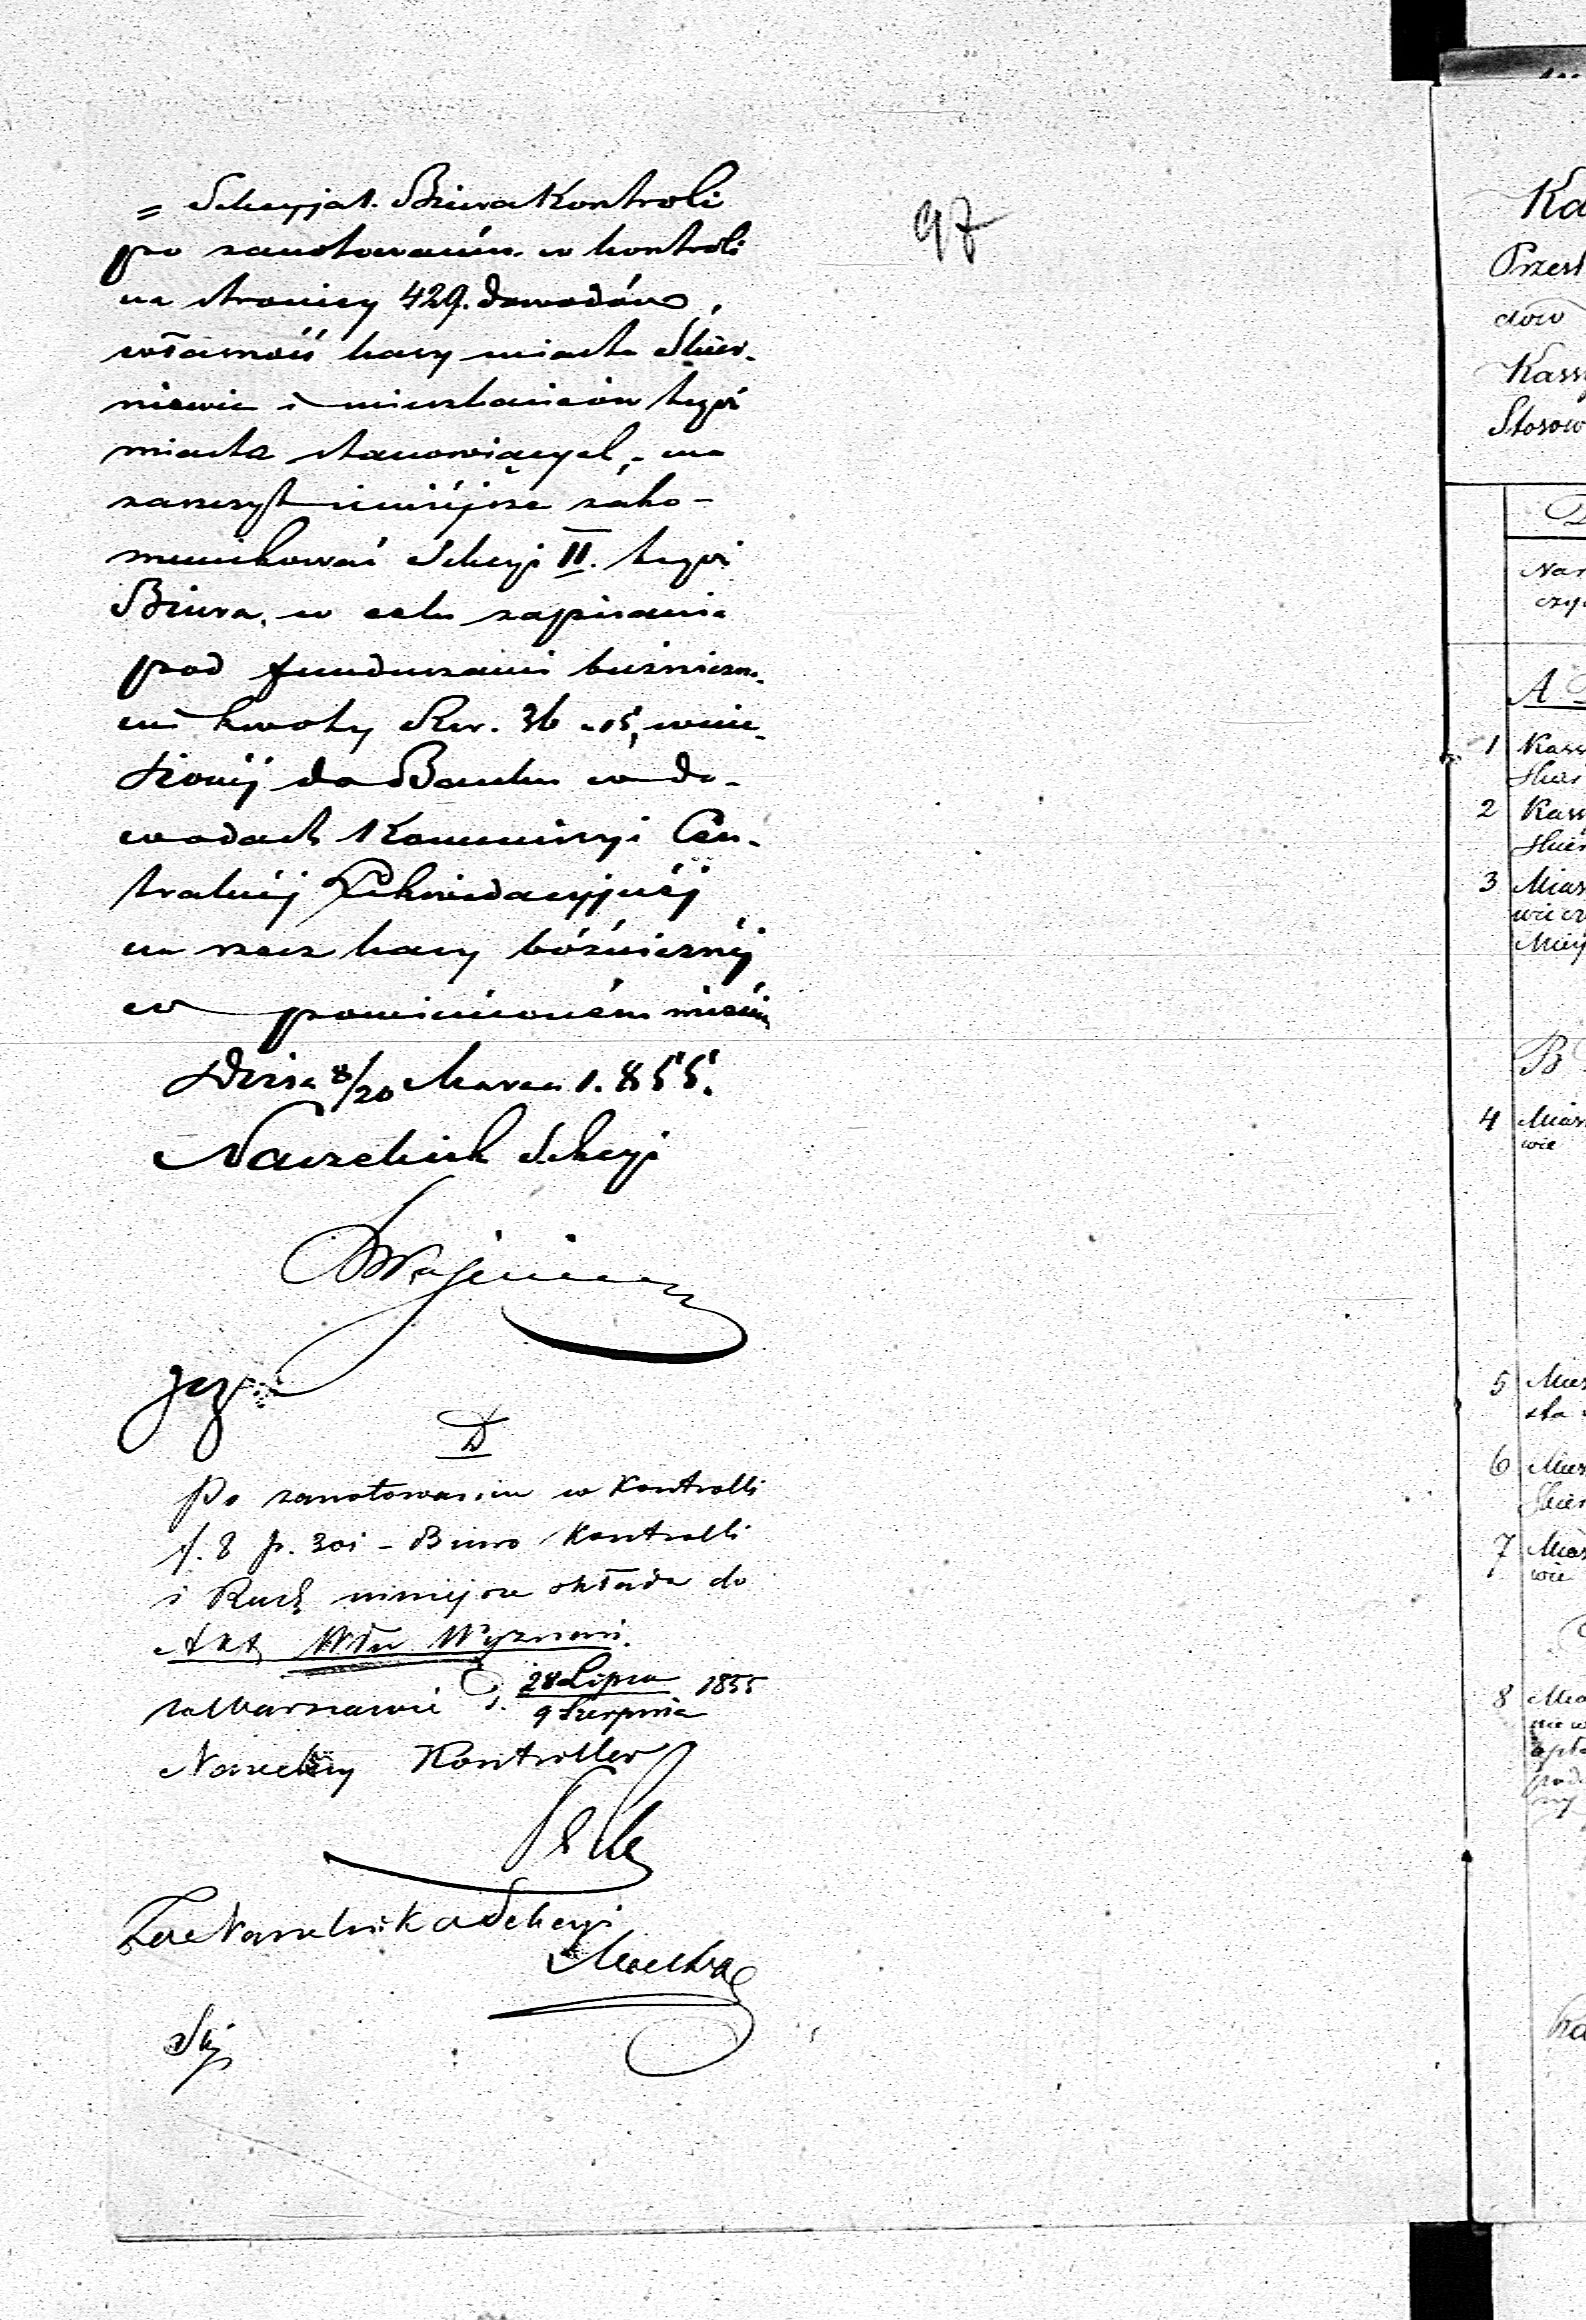 = Sekcyja 1. Biura Kontroli
po zanotowaniu w kontroli
na stronicy 429. dowodów,
własność kassy miasta Skier-
niewic i mieszkańców tegoż
miasta stanowiących, ma
zaszczyt niniejsze zako-
munikować Sekcyi II. tegoż
Biura, w celu zapisania
pod funduszami bużniczne-
mi kwoty Rsr. 36 - 15, wnie-
sionéj do Banku w do-
wodach Kommissyi Cen-
tralnéj Likwidacyjnéj
na rzecz kassy bóżnicznéj
w powienioném mieście
Dnia 8/20 Marca 1.855.
Naczelnik Sekcyi
D
Po zanotowaniu w Kontrolli
f. 8 p. 301 - Biuro Kontrolli
i Rach niniejsze składa do
Akt Wdu Wyznań.
w Warszawie d. 28 Lipca 1855
9 Sierpnia
Naczelny Kontroller
Za Naczelnika Sekcyi
97
Ka
Przest
dow
Kass
Stosow
Na
czy
A
1 Kass
Skier
2 Kass
Skier
3 Mias
wie cz
Miey
B
4 Mias
wie
5 Mies
sta
6 Mies
Skier
7 Mias
wie
8 Mia
nie w
opła
pod
ny